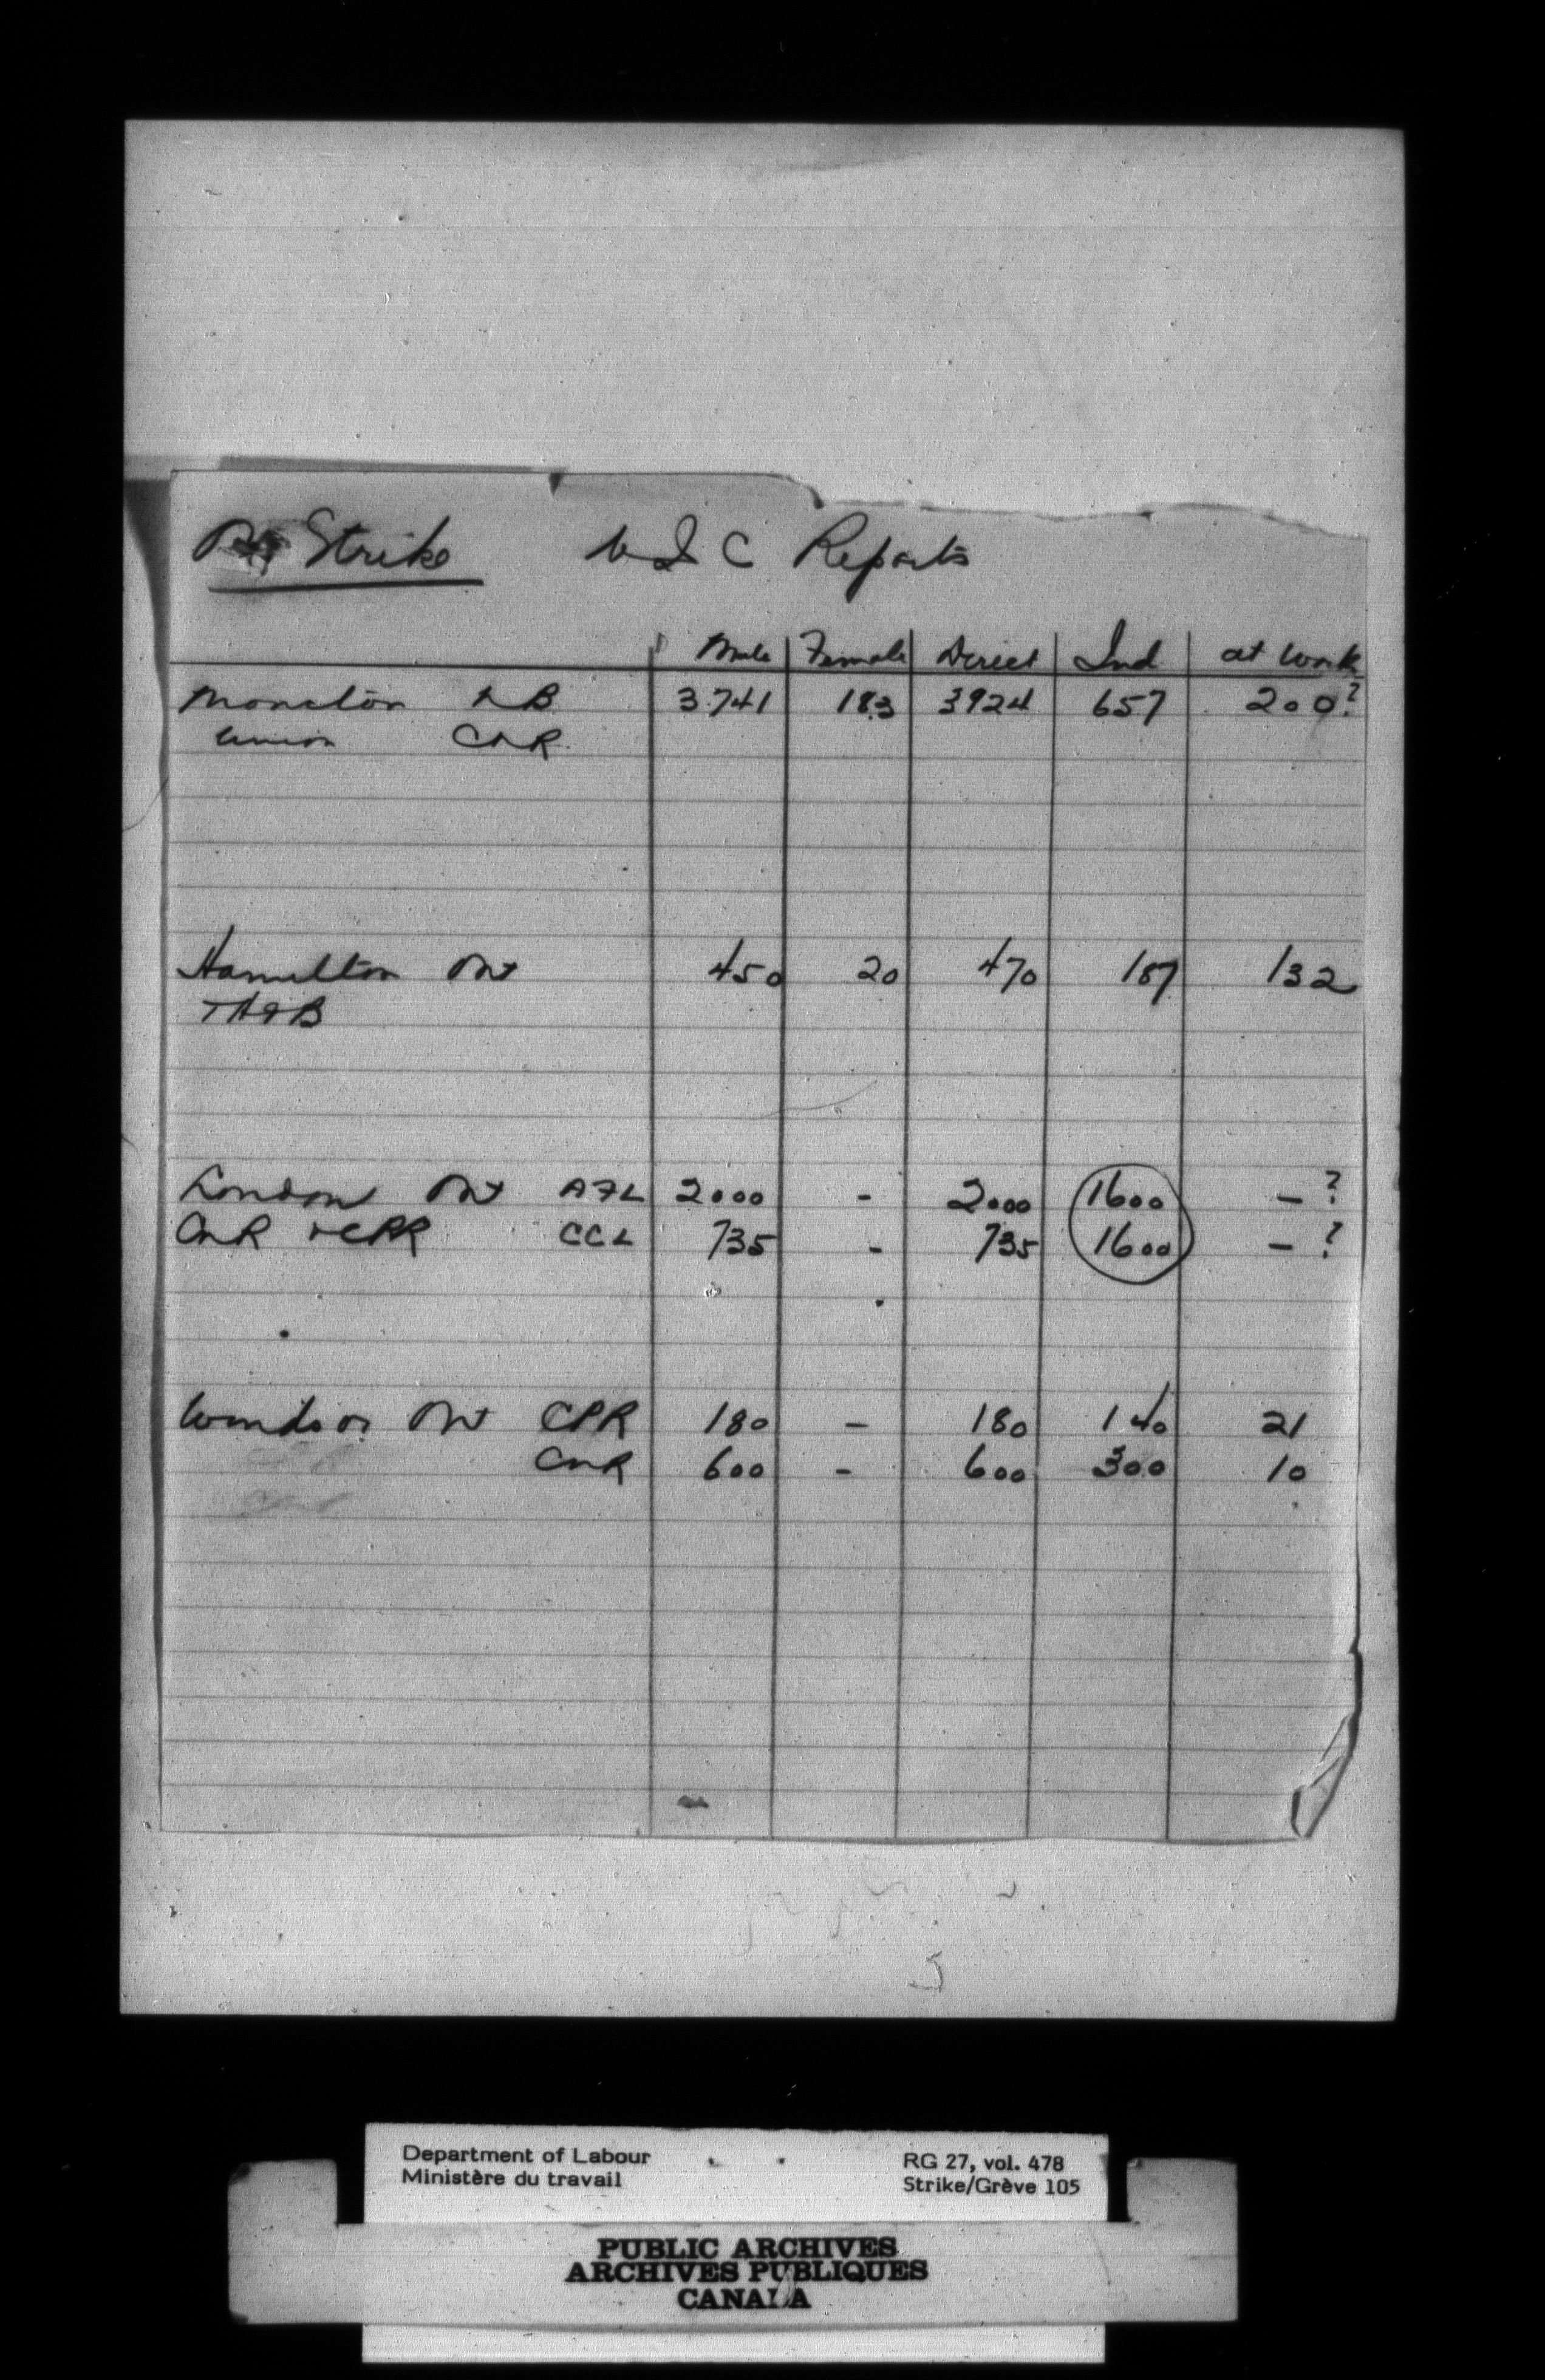 Ry Strike U I C Reports
Male Female Direct Ind at work
Moncton NB 3741 183 3924 657 200?
Union CNR
Hamilton Ont 450 20 470 187 132
TH&B
London Ont AFL 2000 - 2000 1600 - ?
CNR & CPR CCL 735 - 735 1600 - ?
Windsor Ont CPR 180 - 180 140 21
CNR 600 - 600 300 10
Department of Labour
Ministère du travail
RG 27, vol. 478
Strike/Grève 105
PUBLIC ARCHIVES
ARCHIVES PUBLIQUES
CANADA